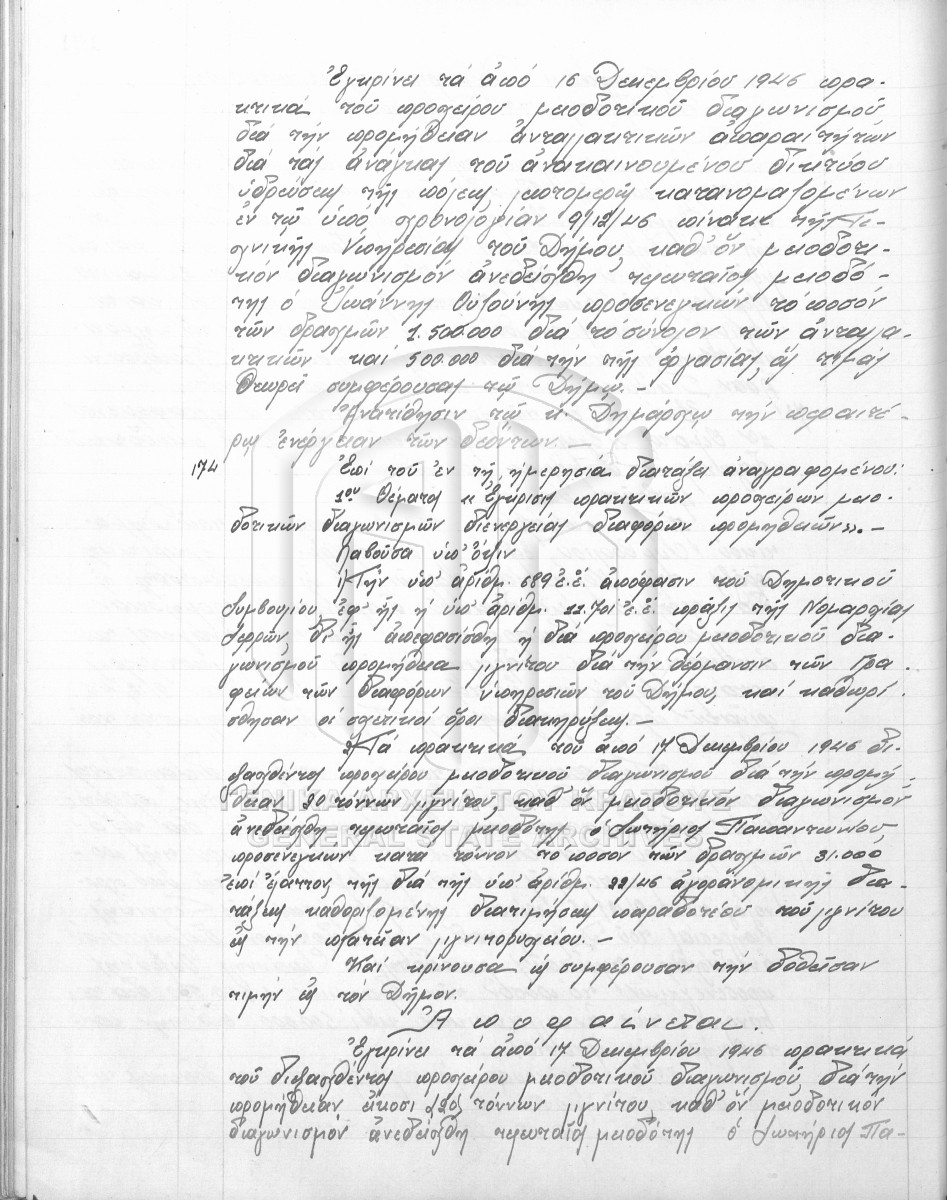 Ἐγκρίνει τά ἀπό 16 Δεκεμβρίου 1946 πρα-
κτικά τοῦ προχείρου μειοδοτικοῦ διαγωνισμοῦ
διά τήν προμήθειαν ἀνταλλακτικῶν ἀπαραιτήτων
διά τάς ἀνάγκας τοῦ ἀνακαινουμένου δικτύου
ὑδρεύσεως τῆς πόλεως λεπτομερῶς κατανομαζομένων
ἐν τῷ ὑπό χρονολογίαν 9/12/46 πίνακι τῆς Τε-
χνικῆς Ὑπηρεσίας τοῦ Δήμου, καθ' ὅν μειοδοτι-
κόν διαγωνισμόν ἀνεδείχθη τελευταῖος μειοδό-
της ὁ Ἰωάννης Οὐζούνης προσενεγκών τό ποσόν
τῶν δραχμῶν 1.500.000 διά τό σύνολον τῶν ἀνταλλα-
κτικῶν καί 500.000 διά τήν τῆς ἐργασίας, ἅς τιμάς
θεωρεῖ συμφερούσας τῷ Δήμῳ.-
Ἀνατίθησιν τῷ κ. Δημάρχῳ τήν περαιτέ-
ρω ἐνέργειαν τῶν δεόντων.-
174 Ἐπί τοῦ ἐν τῇ ἡμερησίᾳ διατάξει ἀναγραφομένου:
1ου θέματος «Ἔγκρισις πρακτικῶν προχείρων μειο-
δοτικῶν διαγωνισμῶν διενεργείας διαφόρων προμηθειῶν».-
Λαβοῦσα ὑπ' ὄψιν
1) Τήν ὑπ' ἀριθμ. 689 ἐ.ἔ. ἀπόφασιν τοῦ Δημοτικοῦ
Συμβουλίου, ἐφ' ἧς ἡ ὑπ' ἀριθμ. ἐ.ἔ. πρᾶξις τῆς Νομαρχίας
Σερρῶν, δι' ἧς ἀπεφασίσθη ἡ διά προχείρου μειοδοτικοῦ δια-
γωνισμοῦ προμήθεια λιγνίτου διά τήν θέρμανσιν τῶν Γρα-
φείων τῶν διαφόρων ὑπηρεσιῶν τοῦ Δήμου, καί καθωρί-
σθησαν οἱ σχετικοί ὅροι διακηρύξεως.-
2) Τά πρακτικά τοῦ ἀπό 17 Δεκεμβρίου 1946 δι-
εξαχθέντος προχείρου μειοδοτικοῦ διαγωνισμοῦ διά τήν προμή-
θειαν 20 τόννων λιγνίτου, καθ' ὅν μειοδοτικόν διαγωνισμόν
ἀνεδείχθη τελευταῖος μειοδότης ὁ Σωτήριος Παπαντωνίου,
προσενεγκών κατά τόννον τό ποσόν τῶν δραχμῶν 31.000
ἐπί ἔλαττον τῆς διά τῆς ὑπ' ἀριθμ. 22/46 ἀγορανομικῆς δια-
τάξεως καθοριζομένης διατιμήσεως παραδοτέου τοῦ λιγνίτου
εἰς τήν πλατεῖαν λιγνιτορυχείου.-
Καί κρίνουσα ὡς συμφέρουσαν τήν δοθεῖσαν
τιμήν εἰς τόν Δῆμον.
Ἀποφαίνεται.
Ἐγκρίνει τά ἀπό 17 Δεκεμβρίου 1946 πρακτικά
τοῦ διεξαχθέντος προχείρου μειοδοτικοῦ διαγωνισμοῦ, διά τήν
προμήθειαν εἴκοσι (20) τόννων λιγνίτου, καθ' ὅν μειοδοτικόν
διαγωνισμόν ἀνεδείχθη τελευταῖος μειοδότης ὁ Σωτήριος Πα-
ΓΕΝΙΚΑ ΑΡΧΕΙΑ ΤΟΥ ΚΡΑΤΟΥΣ
GENERAL STATE ARCHIVES